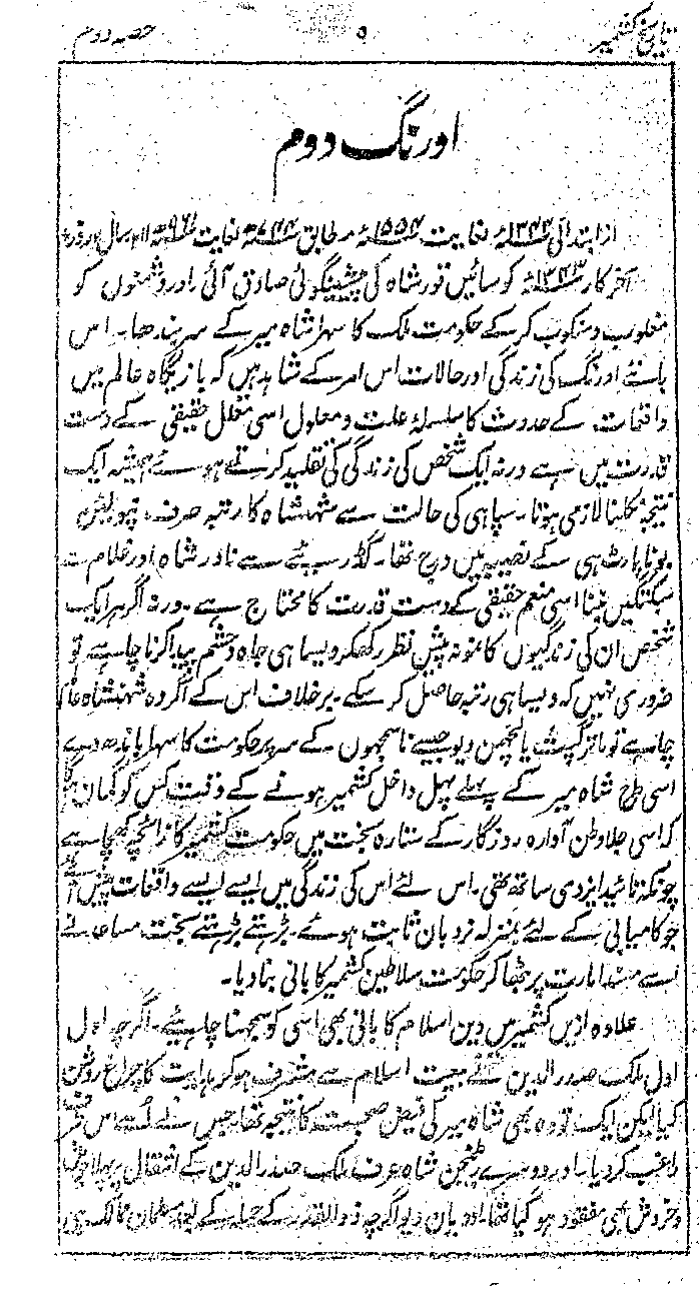 تاریخ کشمیر ۵ حصہ دوم
اورنگ دوم
از ابتدائی ۱۳۴۳ئہ لغایت ۱۵۵۴ئہ مطابق ۷۴۴ھ لغایت ۹۶۱ھ سال
آخر کار ۱۳۴۳ئہ کو سائیں قور شاہ کی پیشینگوئی صادق آئی اور دشمنوں کو
مغلوب و منکوب کر کے حکومت ملک کا سہرا شاہ میر کے سر بندھا۔ اس
بانئے اورنگ کی زندگی اور حالات اس امر کے شاہد ہیں کہ بازیگاہ عالم میں
واقعات کے حدوث کا سلسلۂ علت و معلول اسی معلل حقیقی کے دست
قدرت میں ہے ورنہ ایک شخص کی زندگی کی تقلید کرتے ہوئے ہمیشہ ایک
نتیجہ نکلنا لازمی ہوتا۔ سپاہی کی حالت سے شہنشاہ کا رتبہ صرف نپولین
بوناپارٹ ہی کے نصیبہ میں درج تھا۔ گڈریئے سے نادر شاہ اور غلام سے
سبکتگین بننا اسی منعم حقیقی کے دست قدرت کا محتاج ہے۔ ورنہ اگر ہر ایک
شخص ان کی زندگیوں کا نمونہ پیش نظر رکھکر ویسا ہی جاہ و حشم پیدا کرنا چاہے تو
ضروری نہیں کہ ویسا ہی رتبہ حاصل کر سکے۔ برخلاف اس کے اگر وہ شہنشاہ
چاہے تو یا لچھمن دیو جیسے ناسمجھوں کے سر پر حکومت کا سہرا باندھ دے
اسی طرح شاہ میر کے پہلے پہل داخل کشمیر ہونے کے وقت کس کو گمان تھا
کہ اسی جلاوطن آوارہ روزگار کے ستارہ بخت میں حکومت کشمیر کا زائچہ کھچا ہے
چونکہ تائید ایزدی ساتھ تھی۔ اس لئے اس کی زندگی میں ایسے ایسے واقعات پیش آئے
جو کامیابی کے لئے بمنزلہ نردبان ثابت ہوئے۔ بڑہتے بڑہتے بخت مساعد نے
اسے مسند امارت پر بٹھا کر حکومت سلاطین کشمیر کا بانی بنا دیا۔
علاوہ ازیں کشمیر میں دین اسلام کا بانی بھی اسی کو سمجھنا چاہیئے۔ اگرچہ اول
اول ملک صدرالدین نے بیعت اسلام سے مشرف ہو کر ہدایت کا چراغ روشن
کیا لیکن ایک تو وہ بھی شاہ میر کی فیض صحبت کا نتیجہ تھا جس نے اسے اس طرف
راغب کر دیا۔ اور دوسرے رنچن شاہ عرف ملک صدرالدین کے انتقال پر پہلا جوش
و خروش بھی مفقود ہو گیا تھا۔ ادیان دیو اگرچہ ذوالقدر کے حملہ کے لئے مسلمان ہی